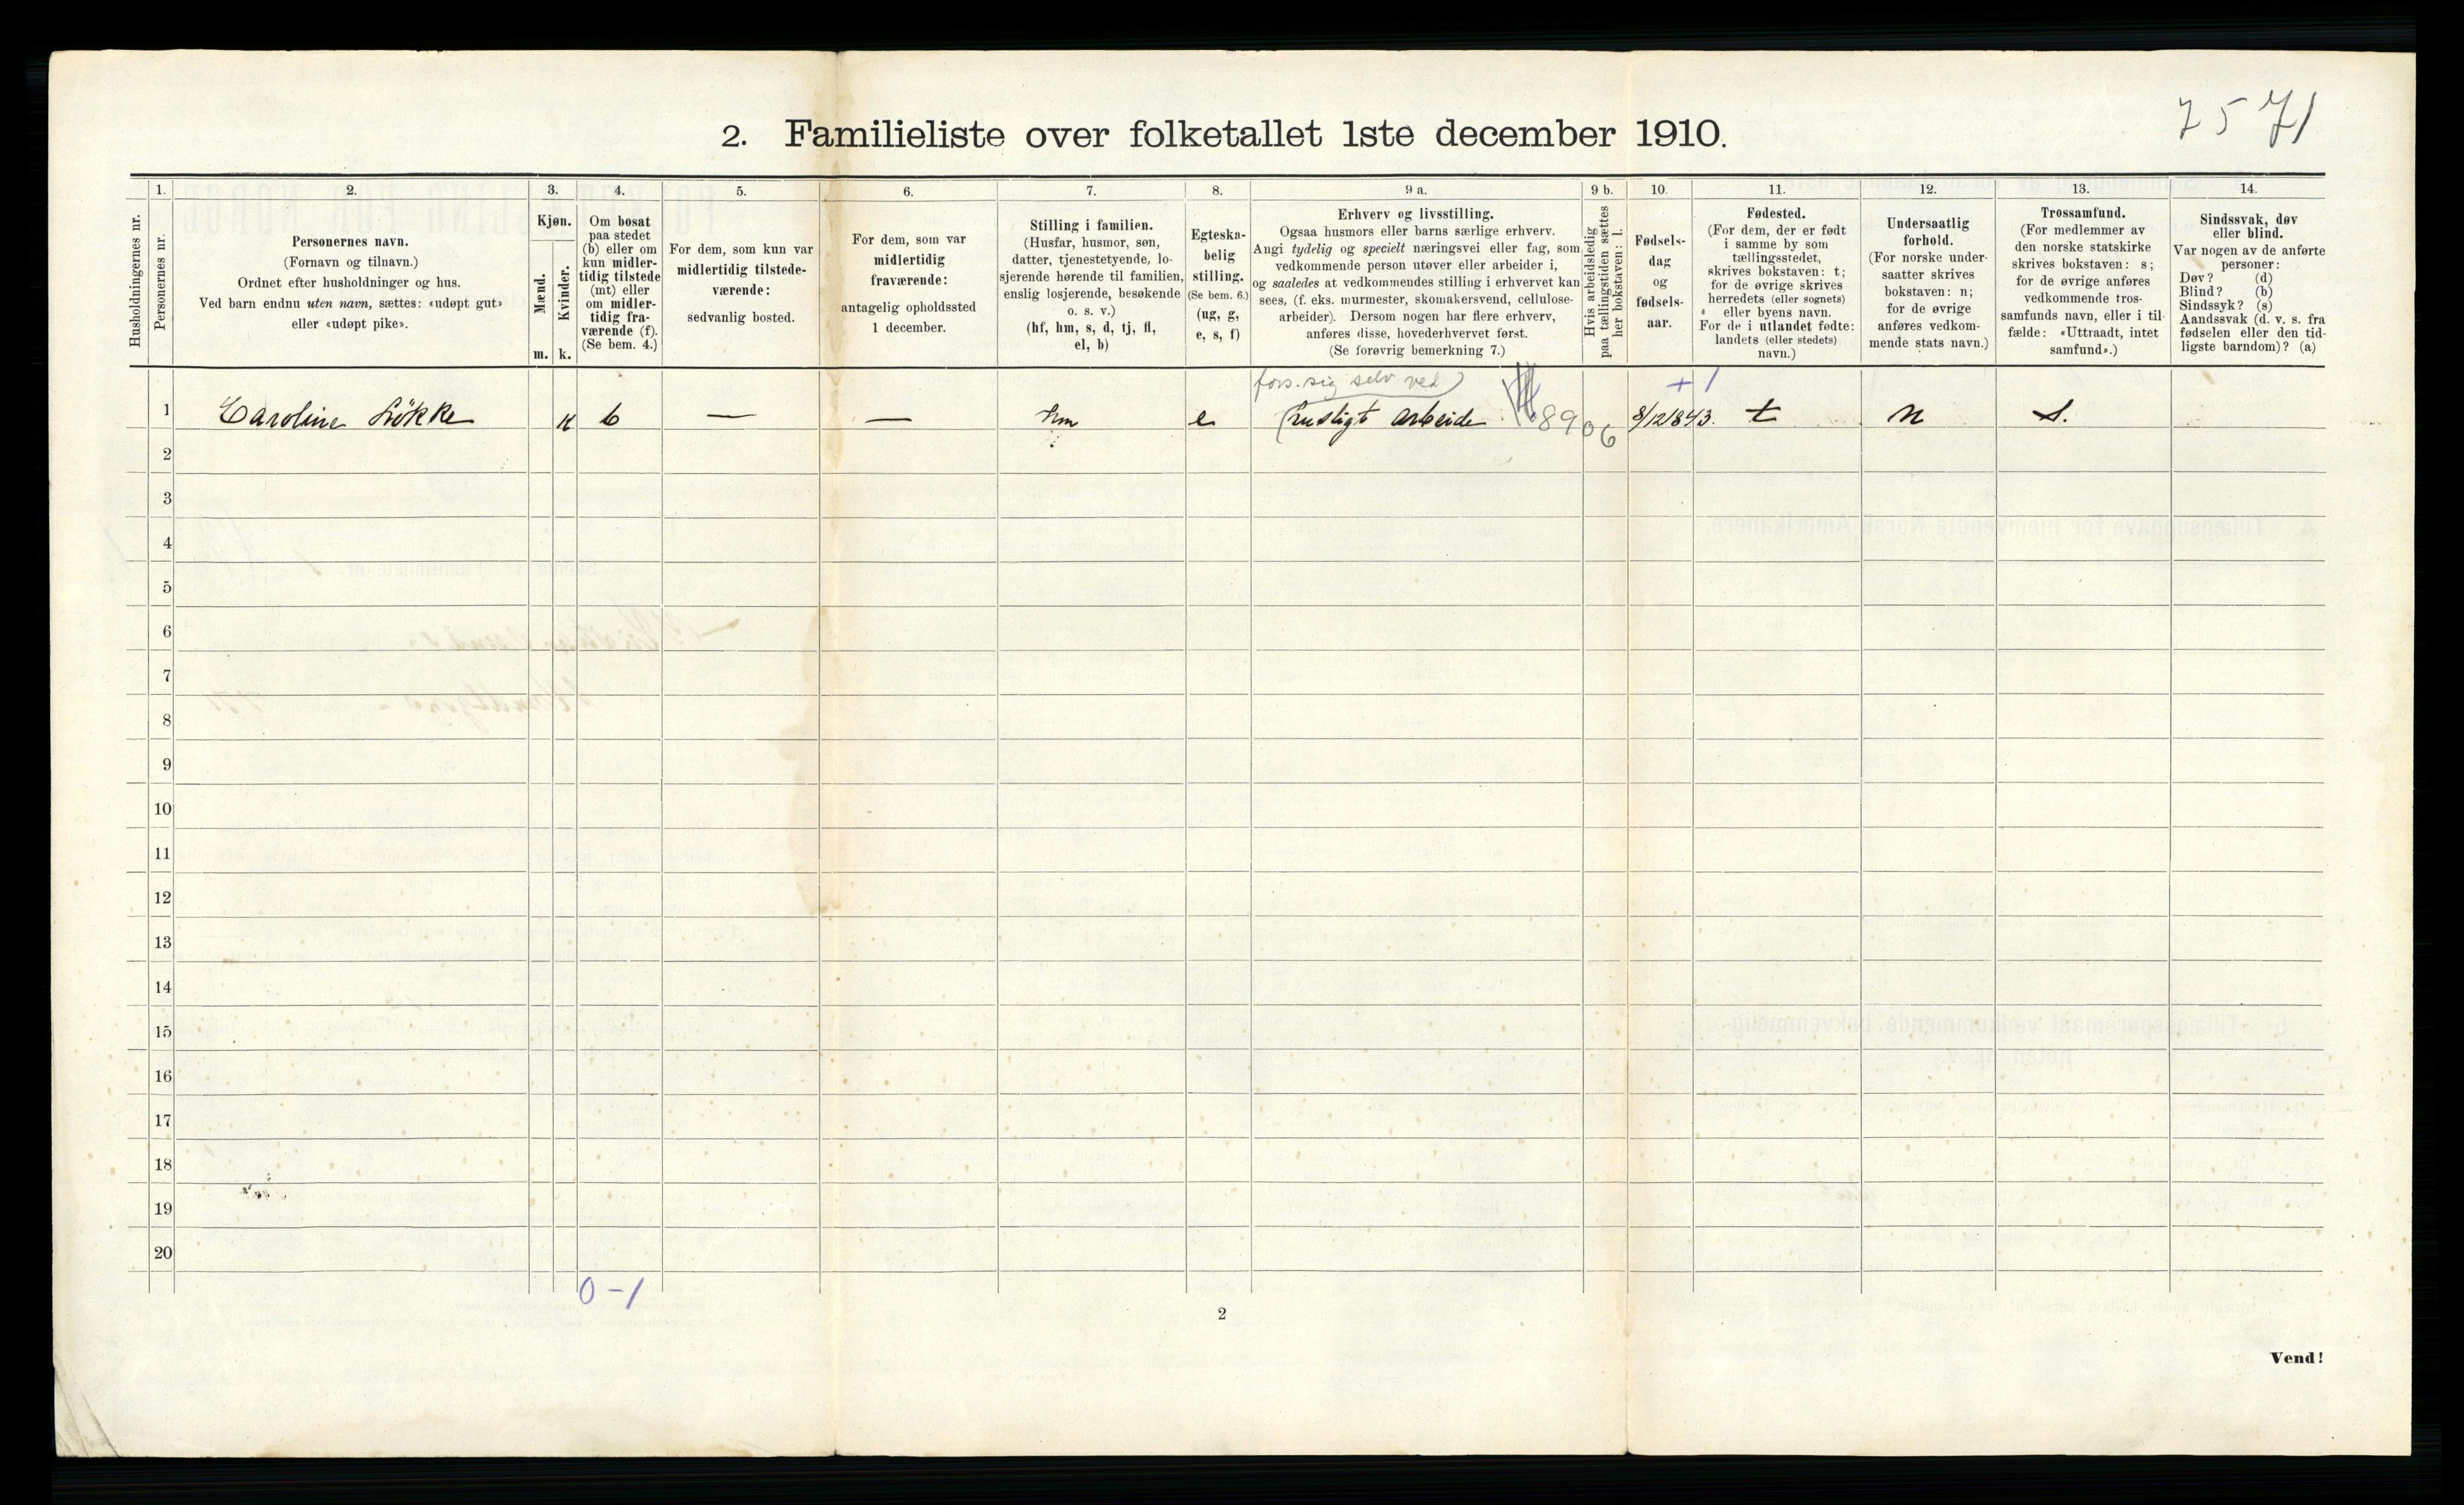 7571
2. Familieliste over folketallet 1ste december 1910.
Husholdningernes nr.
1.
Personernes nr.
2.
Personernes navn.
(Fornavn og tilnavn.)
Ordnet efter husholdninger og hus.
Ved barn endnu uten navn, sættes: «udøpt gut»
eller «udøpt pike».
3.
Kjøn.
Mænd.
m.
Kvinder.
k.
4.
Om bosat
paa stedet
(b) eller om
kun midler-
tidig tilstede
(mt) eller
om midler-
tidig fra-
værende (f).
(Se bem. 4.)
5.
For dem, som kun var
midlertidig tilstede-
værende:
sedvanlig bosted.
6.
For dem, som var
midlertidig
fraværende:
antagelig opholdssted
1 december.
7.
Stilling i familien.
(Husfar, husmor, søn,
datter, tjenestetyende, lo-
sjerende hørende til familien,
enslig losjerende, besøkende
o. s. v.)
(hf, hm, s, d, tj, fl,
el, b)
8.
Egteska-
belig
stilling.
(Se bem. 6.)
(ug, g,
e, s, f)
9 a.
Erhverv og livsstilling.
Ogsaa husmors eller barns særlige erhverv.
Angi tydelig og specielt næringsvei eller fag, som
vedkommende person utøver eller arbeider i,
og saaledes at vedkommendes stilling i erhvervet kan
sees, (f. eks. murmester, skomakersvend, cellulose-
arbeider). Dersom nogen har flere erhverv,
anføres disse, hovederhvervet først.
(Se forøvrig bemerkning 7.)
9 b.
Hvis arbeidsledig
paa tællingstiden sættes
her bokstaven: l.
10.
Fødsels-
dag
og
fødsels-
aar.
11.
Fødested.
(For dem, der er født
i samme by som
tællingsstedet,
skrives bokstaven: t;
for de øvrige skrives
herredets (eller sognets)
eller byens navn.
For de i utlandet fødte:
landets (eller stedets)
navn.)
12.
Undersaatlig
forhold.
(For norske under-
saatter skrives
bokstaven: n;
for de øvrige
anføres vedkom-
mende stats navn.)
13.
Trossamfund.
(For medlemmer av
den norske statskirke
skrives bokstaven: s;
for de øvrige anføres
vedkommende tros-
samfunds navn, eller i til-
fælde: «Uttraadt, intet
samfund».)
14.
Sindssvak, døv
eller blind.
Var nogen av de anførte
personer:
Døv? (d)
Blind? (b)
Sindssyk? (s)
Aandssvak (d. v. s. fra
fødselen eller den tid-
ligste barndom)? (a)
fors. sig selv ved + 1
1 Caroline Løkke k b — — hm e husligt arbeide 8906 8/12/843. t n s.
2
3
4
5
6
7
8
9
10
11
12
13
14
15
16
17
18
19
20
0-1
2
Vend!